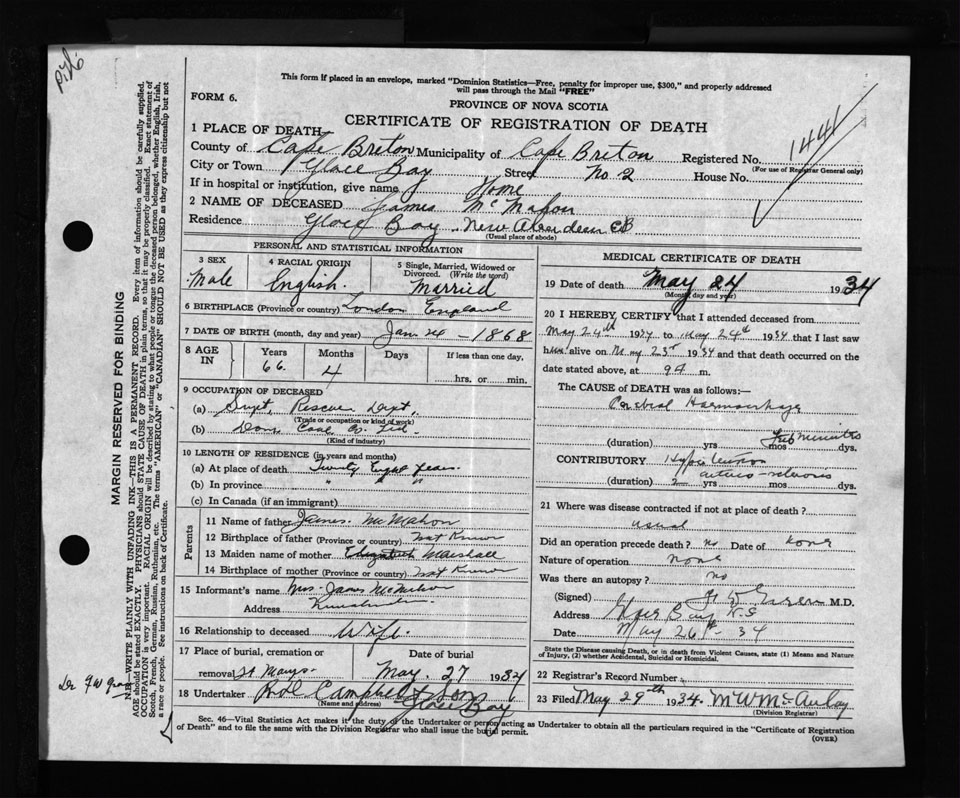 This form if placed in an envelope, marked "Dominion Statistics—Free, penalty for improper use, $300," and properly addressed
will pass through the Mail "FREE"
FORM 6.
PROVINCE OF NOVA SCOTIA
CERTIFICATE OF REGISTRATION OF DEATH
1 PLACE OF DEATH
County of Cape Breton Municipality of Cape Breton Registered No. 1441
(For use of Registrar General only)
City or Town Glace Bay Street No 2 House No.
If in hospital or institution, give name Home
2 NAME OF DECEASED James McMahon
Residence Glace Bay New Aberdeen CB
(Usual place of abode)
PERSONAL AND STATISTICAL INFORMATION
3 SEX
Male
4 RACIAL ORIGIN
English
5 Single, Married, Widowed or
Divorced. (Write the word)
Married
6 BIRTHPLACE (Province or country) London England
7 DATE OF BIRTH (month, day and year) Jan 24 - 1868
8 AGE IN
Years
66
Months
4
Days
If less than one day,
hrs. or min.
9 OCCUPATION OF DECEASED
(a) Supt, Rescue Dept,
(Trade or occupation or kind of work)
(b) Dom Coal Co. Ltd
(Kind of industry)
10 LENGTH OF RESIDENCE (in years and months)
(a) At place of death Twenty Eight Years
(b) In province " " "
(c) In Canada (if an immigrant)
Parents
11 Name of father James McMahon
12 Birthplace of father (Province or country) Not Known
13 Maiden name of mother Elizabeth Marshall
14 Birthplace of mother (Province or country) Not Known
15 Informant's name Mrs. James McMahon
Address
16 Relationship to deceased Wife
17 Place of burial, cremation or
removal St Marys.
Date of burial
May. 27 1934
18 Undertaker Campbell & Sons
(Name and address) Glace Bay
MEDICAL CERTIFICATE OF DEATH
19 Date of death May 24 1934
(Month, day and year)
20 I HEREBY CERTIFY that I attended deceased from
May 24th 1934 to May 24th 1934 that I last saw
him alive on May 23rd 1934 and that death occurred on the
date stated above, at 9 A m.
The CAUSE of DEATH was as follows:—
Cerebral Haemorrhage
(duration) yrs mos dys.
Few Minutes
CONTRIBUTORY Hypertension
arterio-sclerosis
(duration) 2 yrs mos dys.
21 Where was disease contracted if not at place of death?
usual
Did an operation precede death? no Date of none
Nature of operation none
Was there an autopsy? no
(Signed) M.D.
Address Glace Bay N.S
Date May 26th - 34
State the Disease causing Death, or in death from Violent Causes, state (1) Means and Nature
of Injury, (2) whether Accidental, Suicidal or Homicidal.
22 Registrar's Record Number
23 Filed May 29th 1934. M W McAulay
(Division Registrar)
Sec. 46—Vital Statistics Act makes it the duty of the Undertaker or person acting as Undertaker to obtain all the particulars required in the "Certificate of Registration
of Death" and to file the same with the Division Registrar who shall issue the burial permit.
(OVER)
MARGIN RESERVED FOR BINDING
N.B.—WRITE PLAINLY WITH UNFADING INK—THIS IS A PERMANENT RECORD. Every item of information should be carefully supplied.
AGE should be stated EXACTLY. PHYSICIANS should STATE CAUSE OF DEATH in plain terms, so that it may be properly classified. Exact statement of
OCCUPATION is very important. RACIAL ORIGIN will be described by stating to what people or tongue the deceased person belonged, whether English, Irish,
Scotch, French, German, Russian, Ruthenian, etc. The terms "AMERICAN" or "CANADIAN" SHOULD NOT BE USED as they express citizenship but not
a race or people. See instructions on back of Certificate.